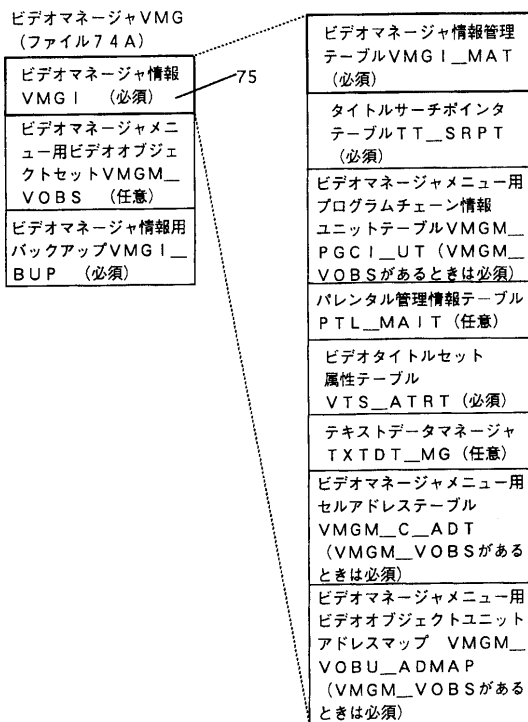 ビデオマネージャVMG
(ファイル74A)
ビデオマネージャ情報
VMGI (必須)
75
ビデオマネージャメニ
ュー用ビデオオブジェ
クトセットVMGM__
VOBS (任意)
ビデオマネージャ情報用
バックアップVMGI__
BUP (必須)
ビデオマネージャ情報管理
テーブルVMGI__MAT
(必須)
タイトルサーチポインタ
テーブルTT__SRPT
(必須)
ビデオマネージャメニュー用
プログラムチェーン情報
ユニットテーブルVMGM__
PGCI__UT (VMGM__
VOBSがあるときは必須)
パレンタル管理情報テーブル
PTL__MAIT (任意)
ビデオタイトルセット
属性テーブル
VTS__ATRT (必須)
テキストデータマネージャ
TXTDT__MG (任意)
ビデオマネージャメニュー用
セルアドレステーブル
VMGM__C__ADT
(VMGM__VOBSがある
ときは必須)
ビデオマネージャメニュー用
ビデオオブジェクトユニット
アドレスマップ VMGM__
VOBU__ADMAP
(VMGM__VOBSがある
ときは必須)